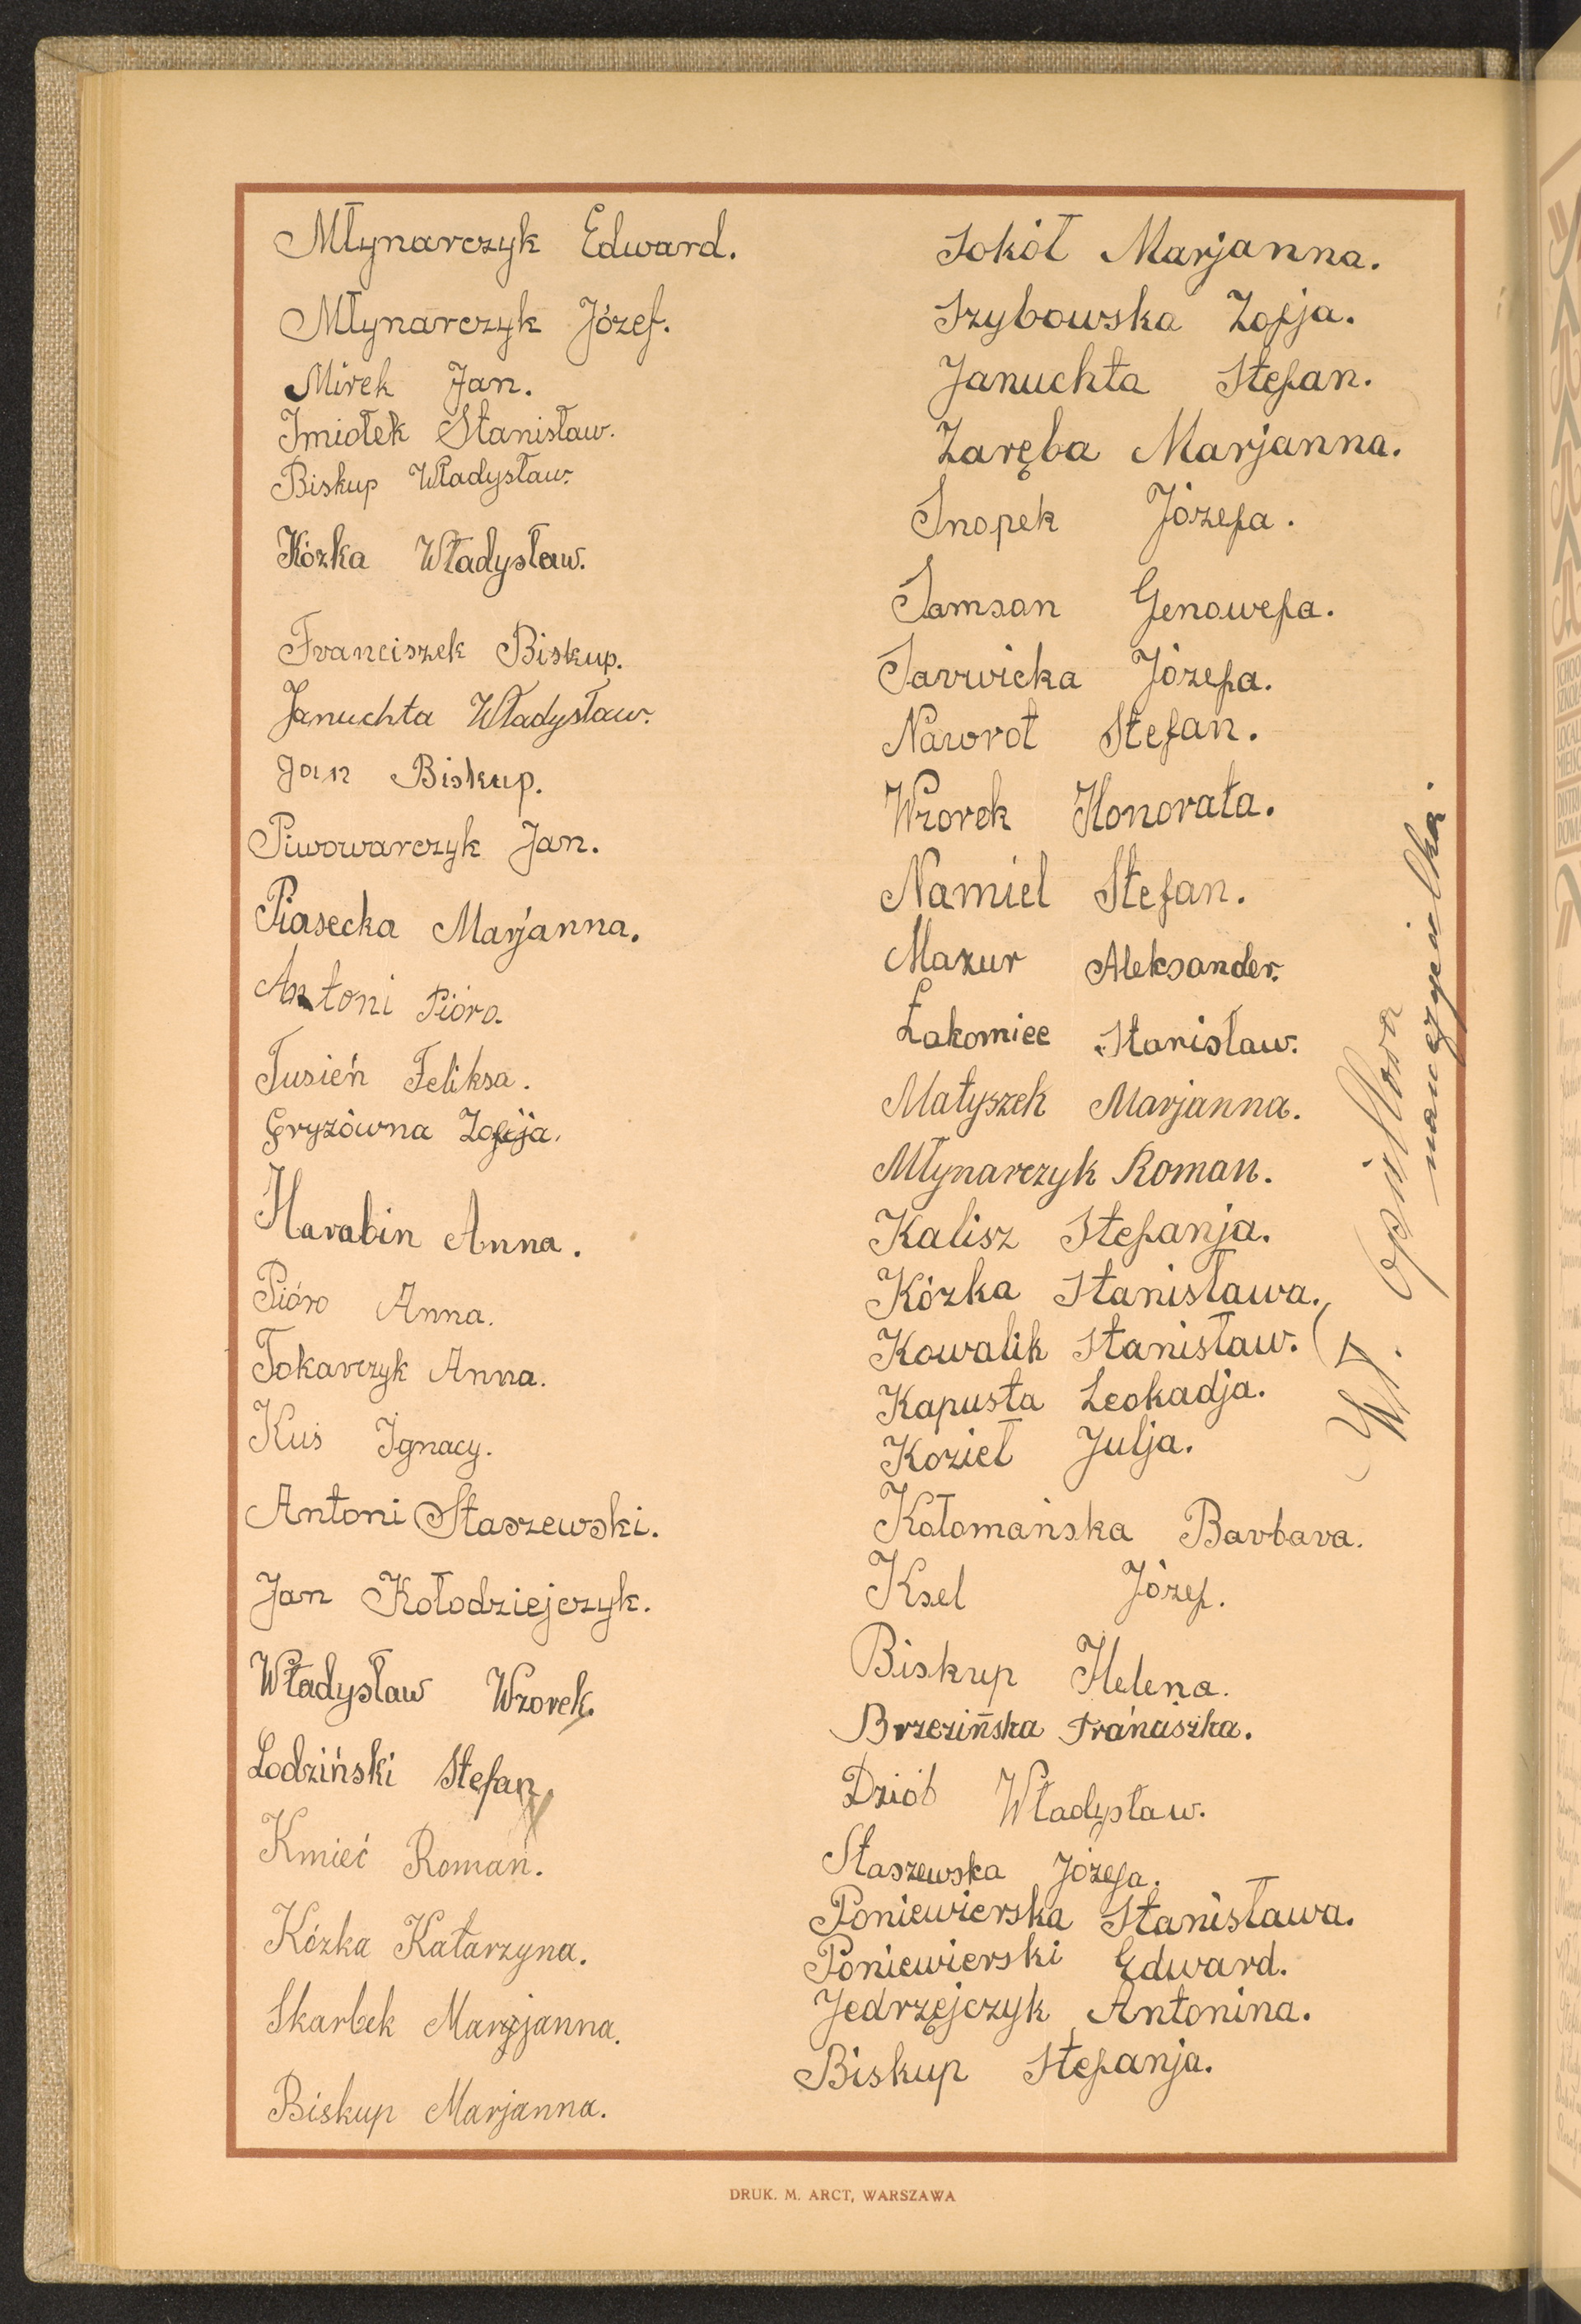 Młynarczyk Edward.
Młynarczyk Józef.
Mirek Jan.
Imiołek Stanisław.
Biskup Władysław.
Kózka Władysław.
Franciszek Biskup.
Januchta Władysław.
Jan Biskup.
Piwowarczyk Jan.
Piasecka Marjanna.
Antoni Pióro.
Tusień Feliksa.
Gryzówna Zofija.
Harabin Anna.
Pióro Anna.
Tokarczyk Anna.
Kuś Ignacy.
Antoni Staszewski.
Jan Kołodziejczyk.
Władysław Wzorek.
Łodziński Stefan.
Kmieć Roman.
Kózka Katarzyna.
Skarbek Marjanna.
Biskup Marjanna.
Sokół Marjanna.
Szybowska Zofja.
Januchta Stefan.
Zaręba Marjanna.
Snopek Józefa.
Samson Genowefa.
Sarwicka Józefa.
Nawrot Stefan.
Wzorek Honorata.
Namiel Stefan.
Mazur Aleksander.
Łakomiec Stanisław.
Matyszek Marjanna.
Młynarczyk Roman.
Kalisz Stefanja.
Kózka Stanisława.
Kowalik Stanisław.
Kapusta Leokadja.
Kozieł Julja.
Kołomańska Barbara.
Ksel Józef.
Biskup Helena.
Brzezińska Franciszka.
Dziób Władysław.
Staszewska Józefa.
Poniewierska Stanisława.
Poniewierski Edward.
Jedrzejczyk Antonina.
Biskup Stefanja.
nauczycielka
DRUK. M. ARCT, WARSZAWA